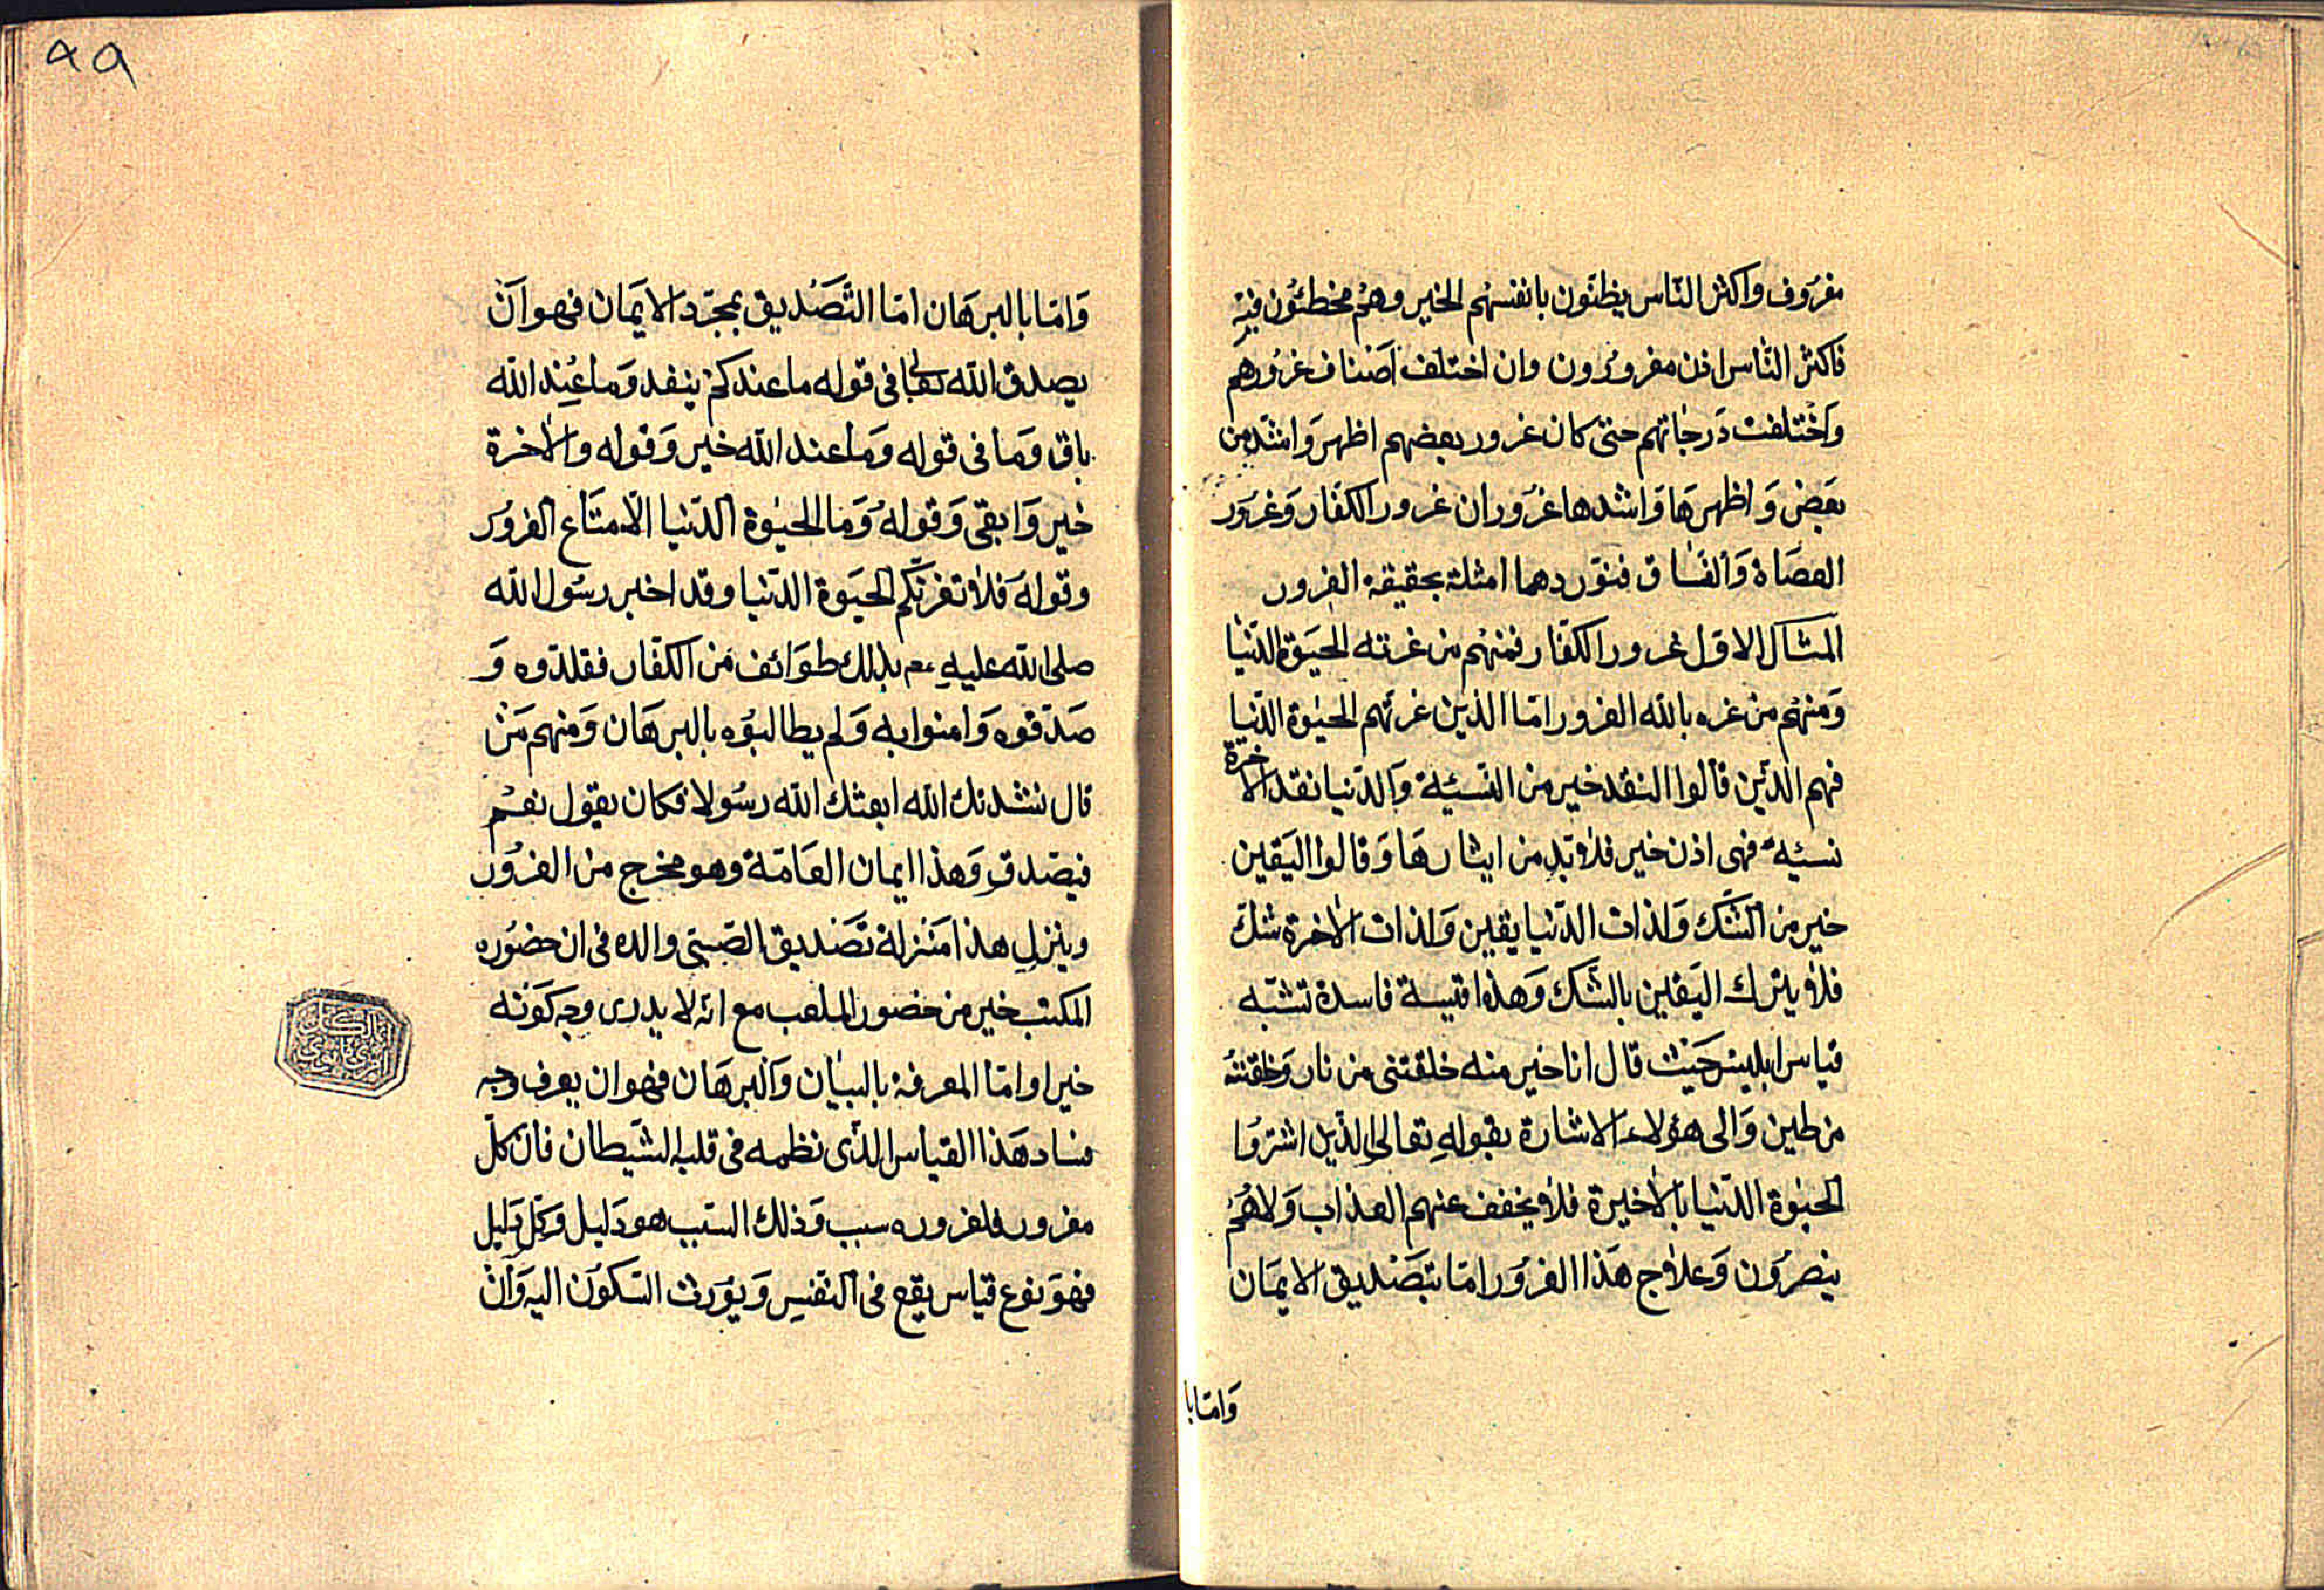 مغرُوف واكثر النّاس يظنّون بانفسهُم الخير وهُم مخطئُون فيهِ
فاكثر النّاس اذن مغرورُون وان اختلف اَصْناف غرُورهم
وَاخْتلفت دَرجاتهم حتىّ كان غرور بعضهم اظهر وَاشدّ من
بعَض وَ اظهرهَا وَاشدها غُرَوران غرور الكفّار وَغرَور
العصَاة وَالفسّاق فنوَردهما امثلة بحقيقة الغرور
المثال الاوّل غرور الكفّار فمنهُم من غرته الحيَوة الدّنْيا
وَمنهُم من غره بالله الغرور امّا الذين غرتهم الحيوة الدّنيا
فهم الذّين قالوا النقد خير من النّسئية وَالدّنيا نقد الاخرة
نسئية فهى اذن خير فلا بدّ من ايثارهَا وَقالوا اليَقين
خير من الشّك وَلذات الدّنيا يقين وَلذات الاخرة شكّ
فلا يترك اليَقين بالشّك وَهذه اقيسة فاسدة تشبّه
قياس ابليس حَيْث قال انا خير منه خلقتنى من نار وَخلقتهُ
من طين وَالى هؤلاء الاشارة بقولهِ تعالى الذّين اشترَوُا
الحيوة الدّنيا بالاخيرة فلا يخفف عنهم العذاب وَلا هُمْ
ينصرُون وَعلاج هَذا الغرُور امّا بتَصْديق الايمَان
وَامّا با
٩٩
وَامّا بالبرهَان امّا التّصَديق بمجرّد الايمَان فهو انْ
يصدق الله تعالى فى قوله ما عندكم ينفد وَما عنِد الله
باق وَما فى قوله وَما عند الله خير وَقوله والاخرة
خير وَابقى وَقولهُ وَما الحيوة الدّنيا الّا متَاع الغرُور
وقولهَ فلا تغرنّكم الحيَوة الدّنيا وقد اخبر رسُول الله
صلى الله عليهِ عم بذلك طوَائف من الكفّار فقلدّوه وَ
صَدّقوه وَامنوا به وَلم يطالبُوه بالبرهَان وَمنهم مَنْ
قال ننشدتك الله ابعثك الله رسُولا فكان يقول نعَمْ
فيصّدق وَهذا ايمان العَامّة وهو مخرج من الغرُور
وينزل هذا مَنزلة تصَديق الصّبىّ والده فى ان حضُوره
المكتب خير من حضور الملعب مع انه لا يدرى وجه كوَنه
خيرا وامّا المعرفة بالبيان وَالبرهَان فهو ان يعرف وجه
فساد هَذا القياس الذّى نظمه فى قلبه الشّيَطان فان كلّ
مغرور فلغروره سبب وَذلك السّبب هو دَليل وَكلّ دَليل
فهوَ نوع قياس يقع فى النّفسِ وَيُوَرث السّكوُن اليه وَانْ